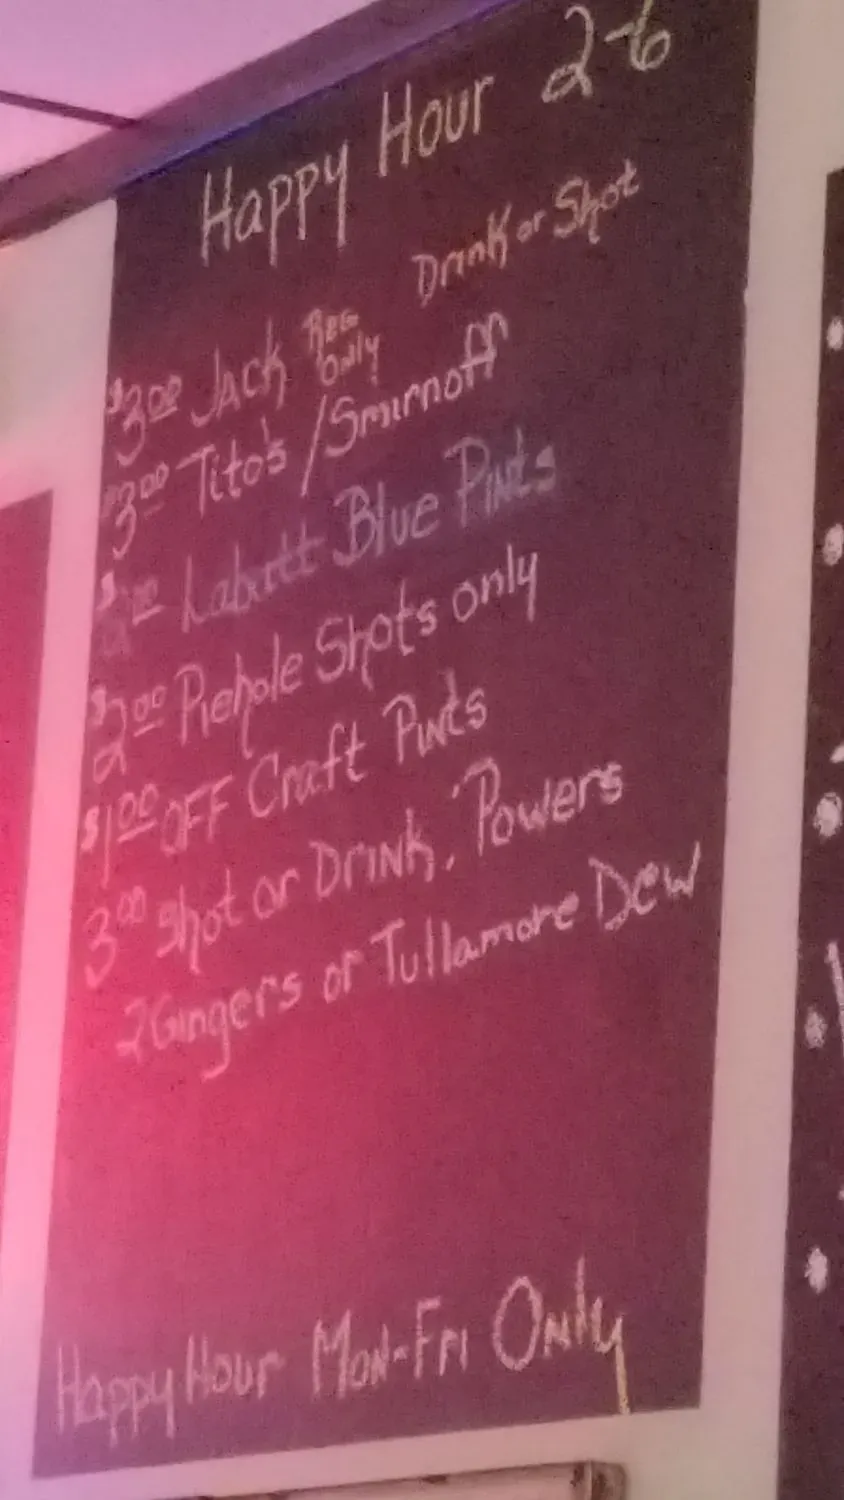 Happy Hour 2-6
Drink or Shot
$3.00 Jack Reg Only
$3.00 Tito's / Smirnoff
Labatt Blue Pints
$2.00 Piehole Shots only
$1.00 OFF Craft Pints
3.00 Shot or Drink. Powers
2Gingers or Tullamore Dew
Happy Hour Mon-Fri Only